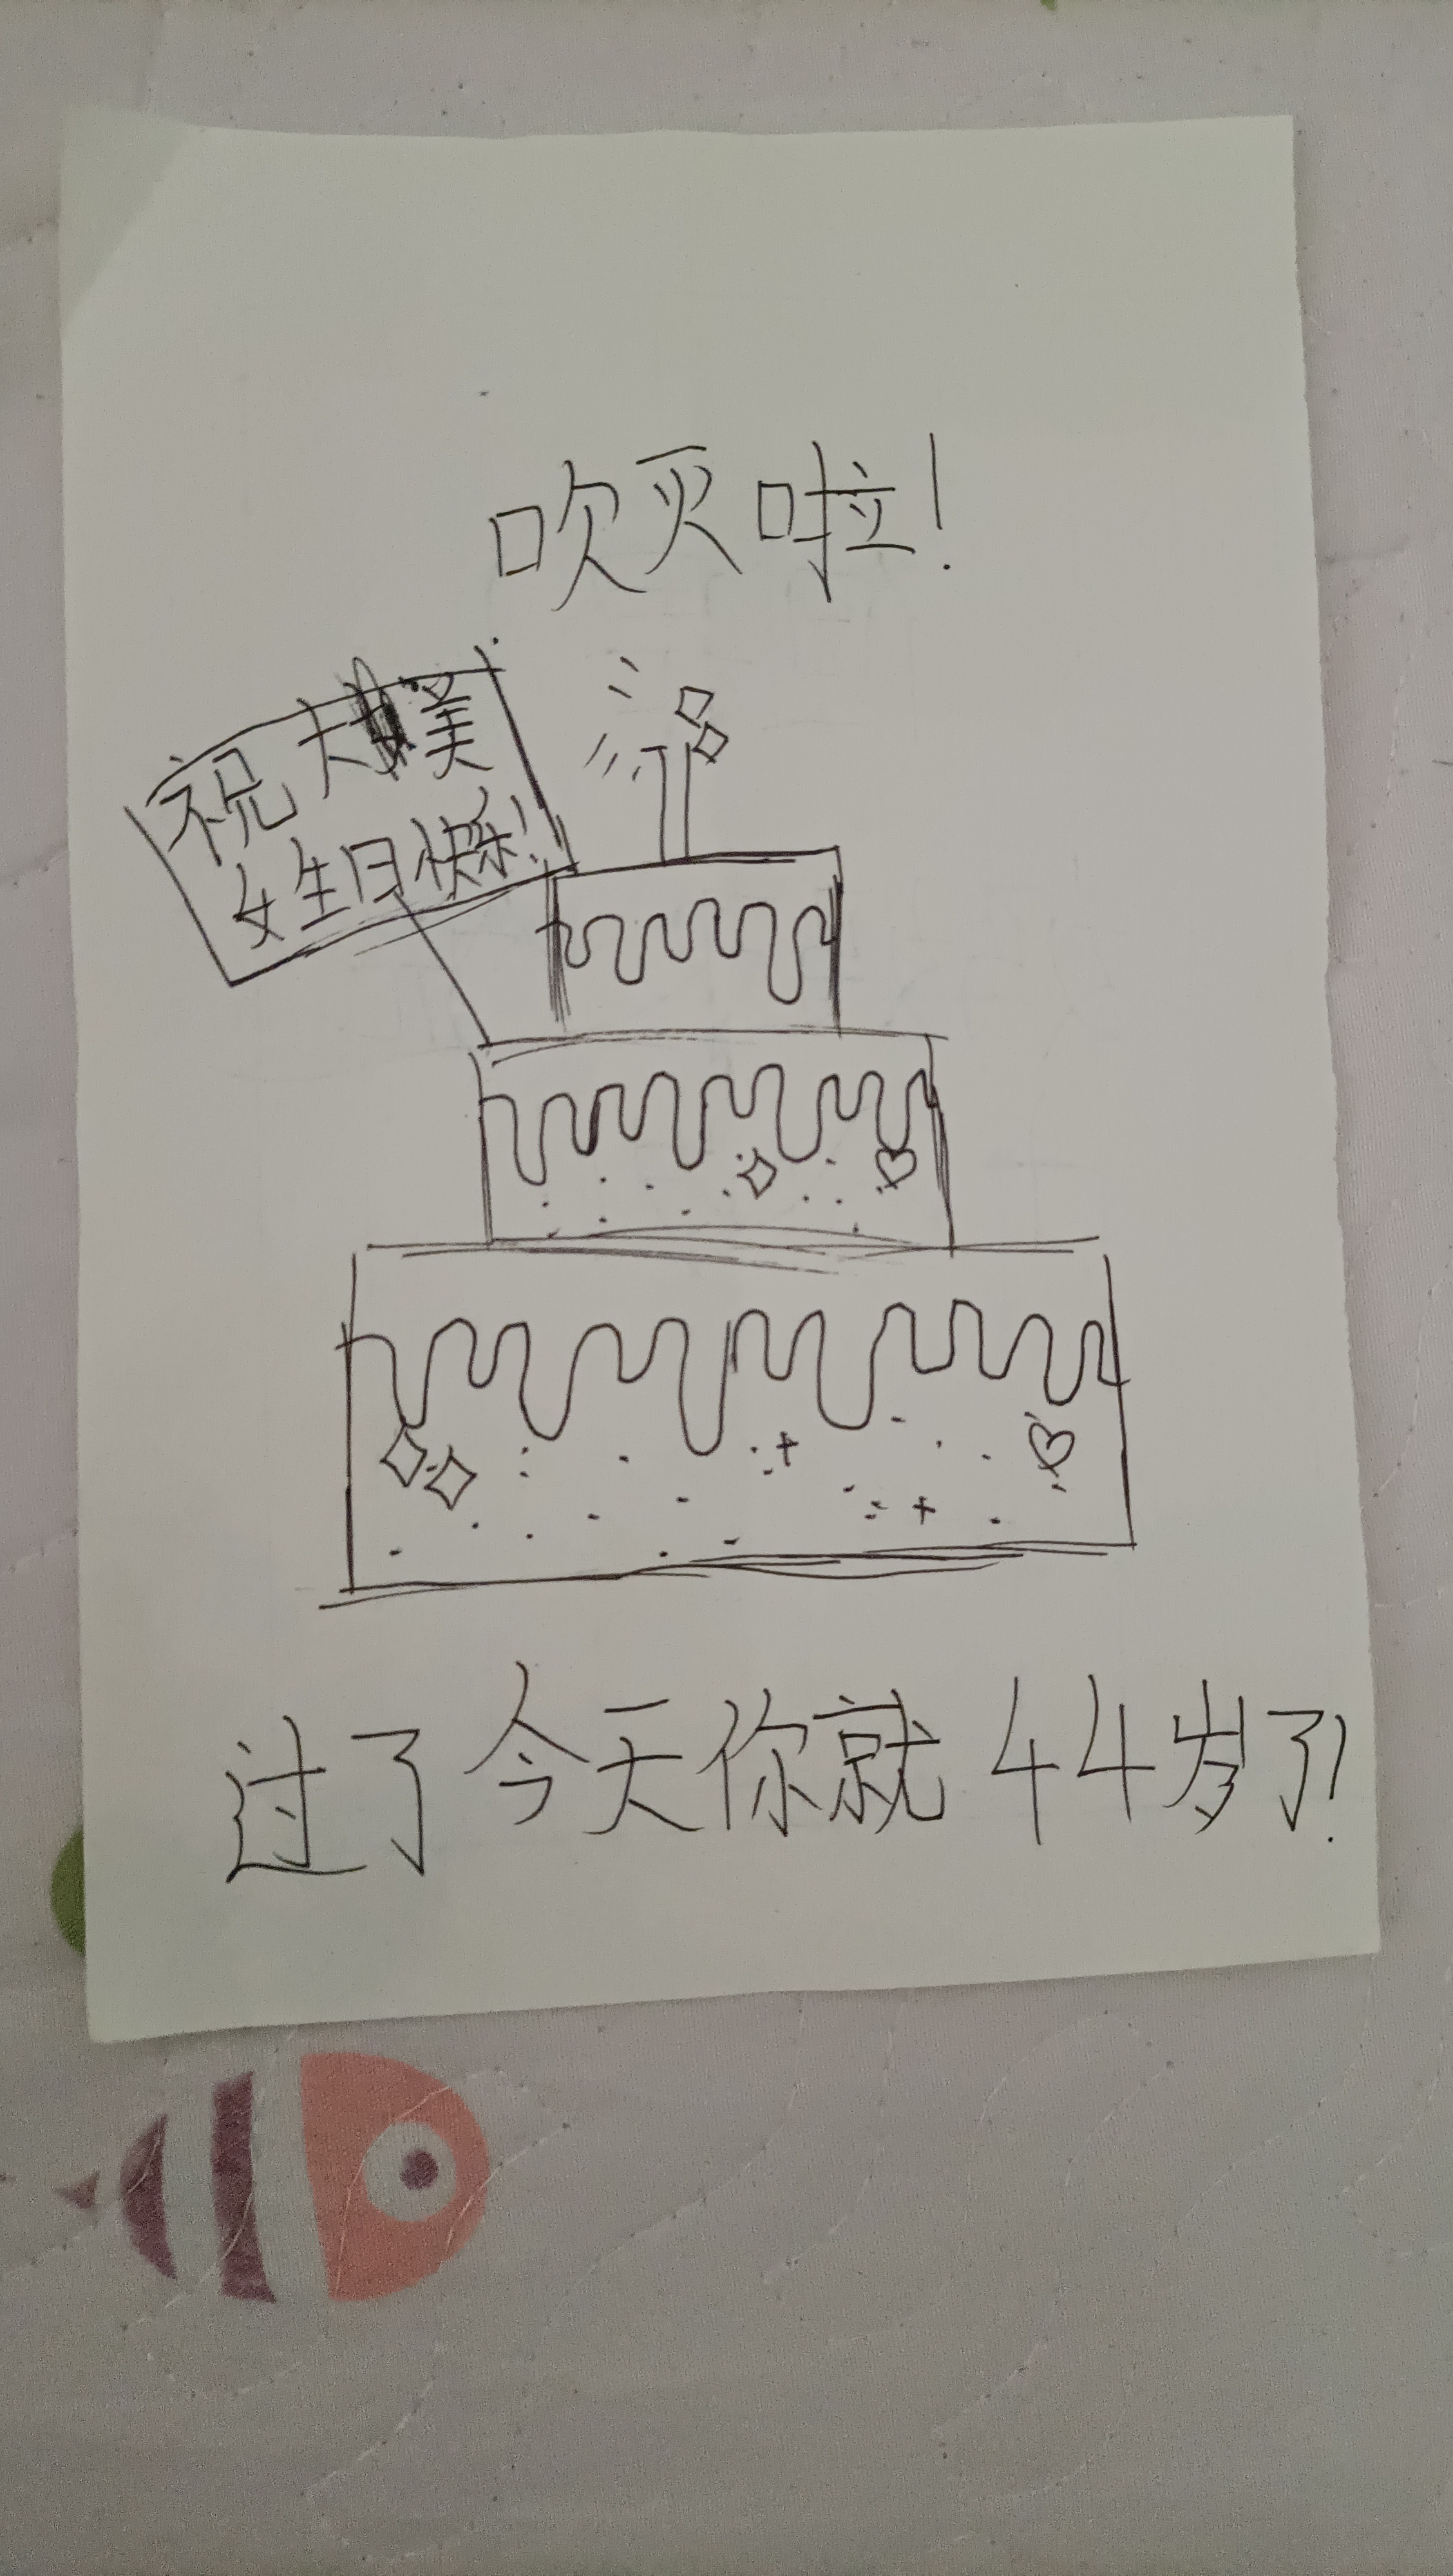 吹灭啦!
祝大美
女生日快乐!
过了今天你就44岁了!